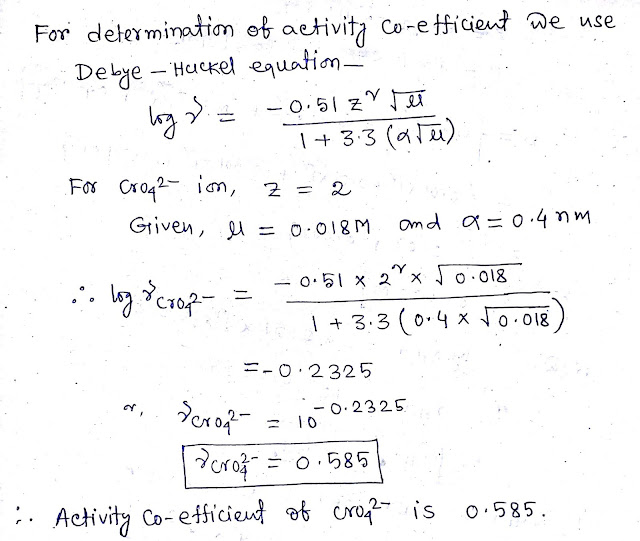 For determination of activity co-efficient we use
Debye - Huckel equation—
log γ = -0.51 z² √μ / 1 + 3.3 (α√μ)
For CrO₄²⁻ ion, z = 2
Given, μ = 0.018M and α = 0.4 nm
∴ log γCrO₄²⁻ = -0.51 × 2² × √0.018 / 1 + 3.3 (0.4 × √0.018)
= -0.2325
or, γCrO₄²⁻ = 10^-0.2325
γCrO₄²⁻ = 0.585
∴ Activity co-efficient of CrO₄²⁻ is 0.585.